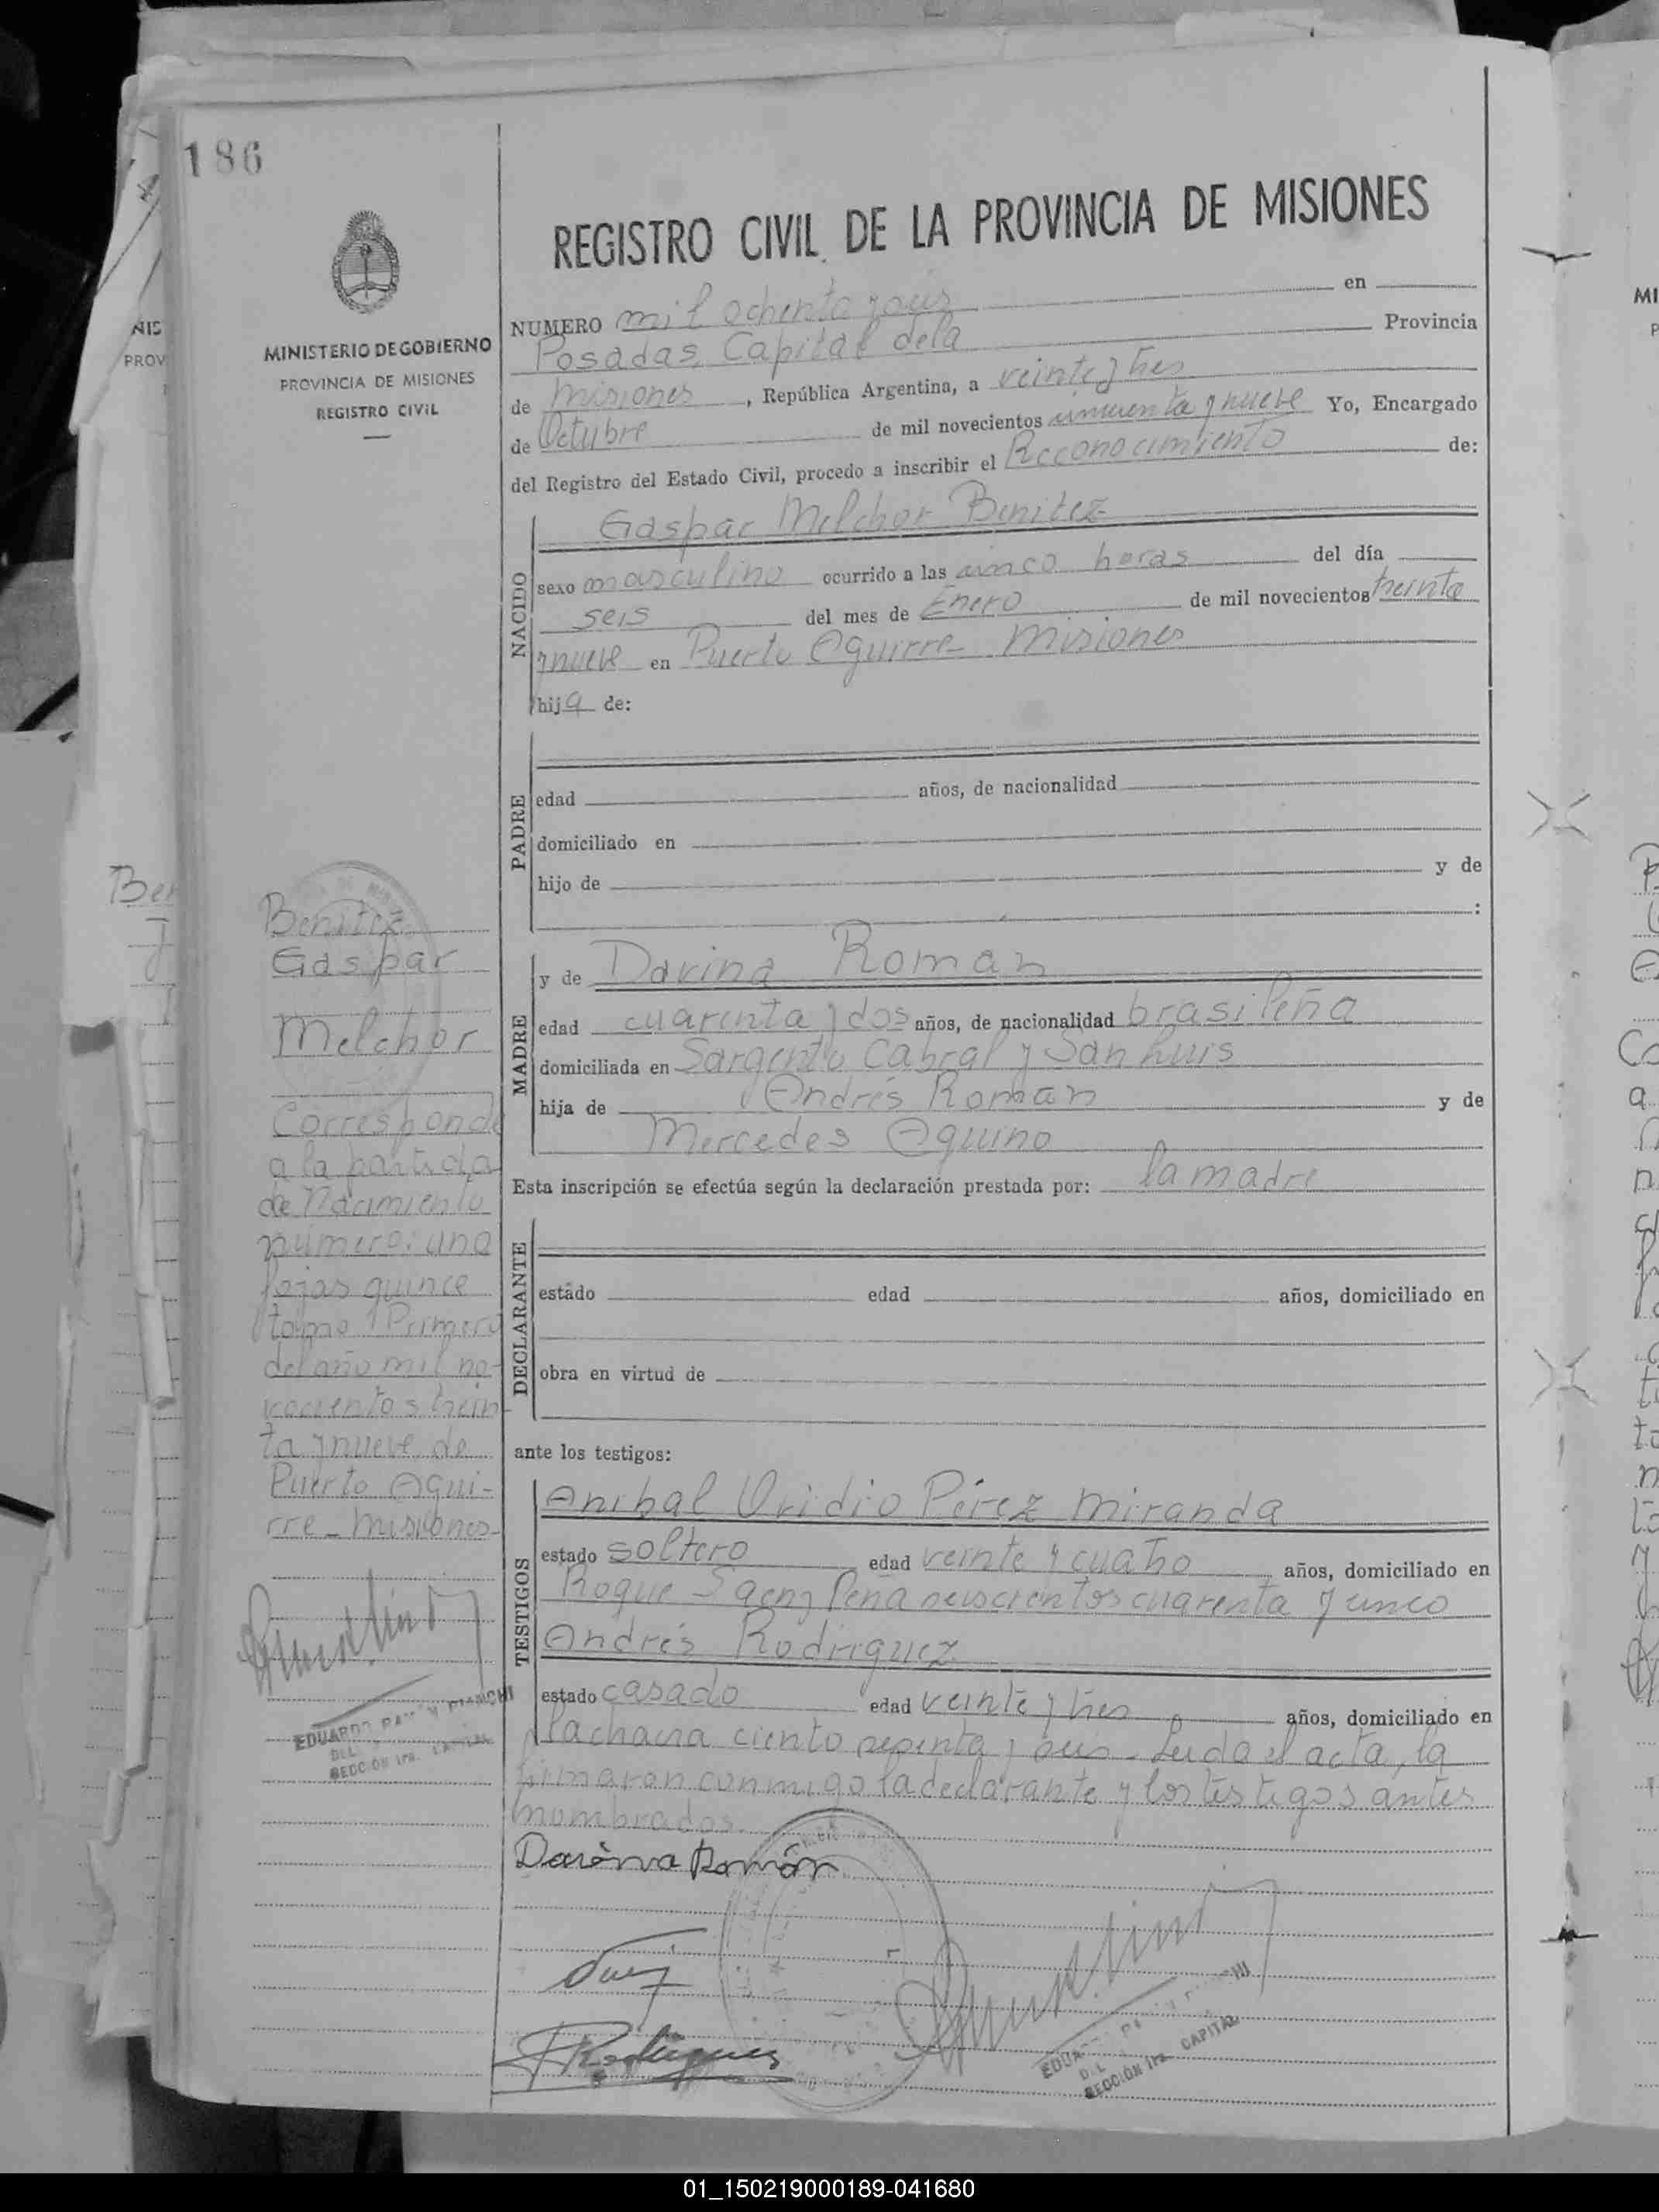 186
REGISTRO CIVIL DE LA PROVINCIA DE MISIONES
MINISTERIO DE GOBIERNO
PROVINCIA DE MISIONES
REGISTRO CIVIL
NUMERO mil ochenta y seis en
Posadas, Capital de la Provincia
de Misiones, República Argentina, a veinte y tres
de Octubre de mil novecientos cincuenta y nueve Yo, Encargado
del Registro del Estado Civil, procedo a inscribir el Reconocimiento de:
NACIDO
Gaspar Melchor Benitez
sexo masculino ocurrido a las cinco horas del día
seis del mes de Enero de mil novecientos treinta
y nueve en Puerto Aguirre Misiones
hija de:
PADRE
edad años, de nacionalidad
domiciliado en
hijo de y de
:
MADRE
y de Darina Roman
edad cuarenta y dos años, de nacionalidad brasileña
domiciliada en Sargento Cabral y San Luis
hija de Andrés Román y de
Mercedes Aquino
Esta inscripción se efectúa según la declaración prestada por: la madre
DECLARANTE
estado edad años, domiciliado en
obra en virtud de
ante los testigos:
TESTIGOS
Anibal Ovidio Pérez Miranda
estado soltero edad veinte y cuatro años, domiciliado en
Roque Saenz Peña seiscientos cuarenta y cinco
Andrés Rodriguez
estado casado edad veinte y tres años, domiciliado en
la chacra ciento y seis. Leida el acta, la
firmaron conmigo la declarante y los testigos antes
nombrados.
Darina Román
Rodriguez
EDUARDO
SECCIÓN 1ra. CAPITAL
Benitez
Gaspar
Melchor
Corresponde
a la partida
de Nacimiento
número: uno
fojas quince
tomo Primero
del año mil no-
vecientos trein-
ta y nueve de
Puerto Agui-
rre - Misiones
EDUARDO RAMON BIANCHI
DEL
SECCIÓN 1ra. CAPITAL
NIS
PROV
Ben
MI
P
01_150219000189-041680